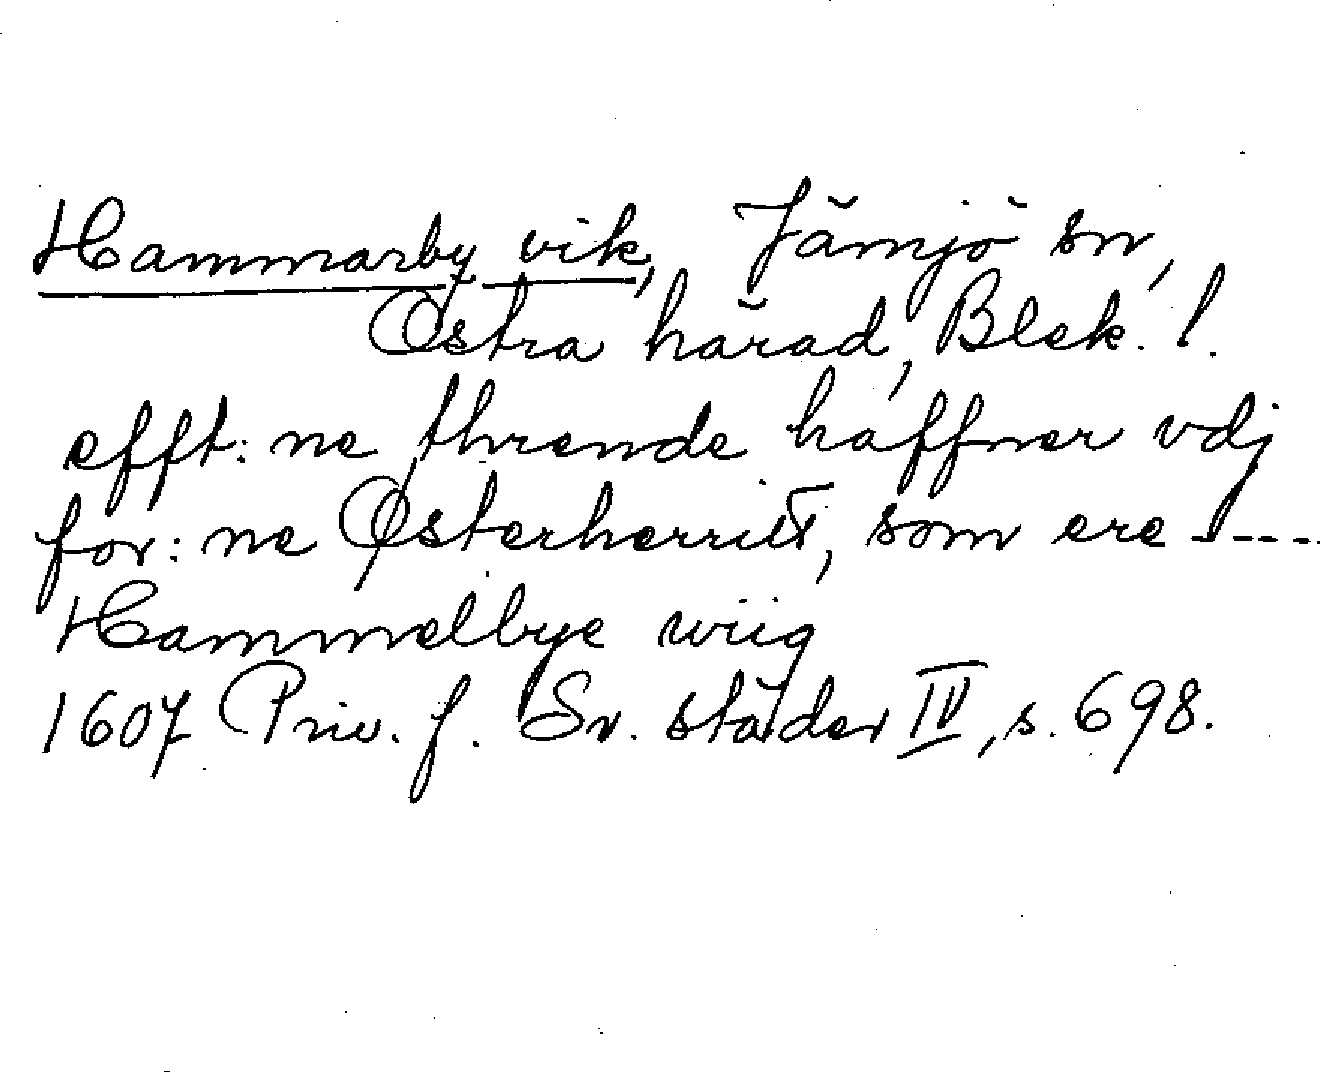 Hammarby vik, Jämjö sn,
Östra härad, Blek. l.
efft: ne thrende haffner vdj
for: ne Østerherritt, som ere ----
Hammelbye wiig
1607 Priv. f. Sv. städer IV, s. 698.